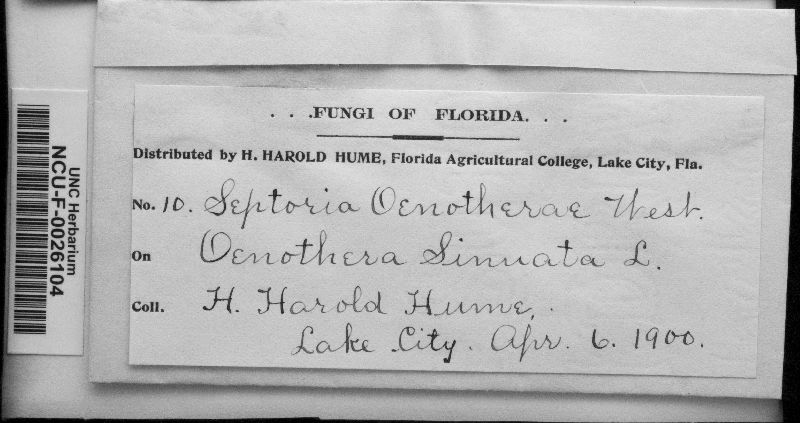 . . .FUNGI OF FLORIDA. . .
Distributed by H. HAROLD HUME, Florida Agricultural College, Lake City, Fla.
No. 10. Septoria Oenotherae West.
On Oenothera Sinuata L.
Coll. H. Harold Hume,
Lake City. Apr. 6. 1900.
UNC Herbarium
NCU-F-0026104